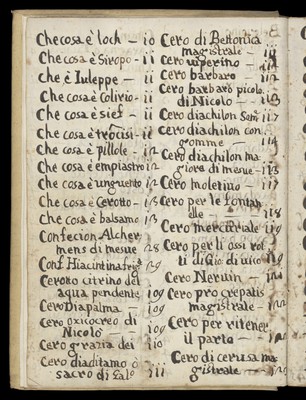 Che cosa è loch - 10
Che cosa è Siropo - 11
Che è Iuleppe - 11
Che cosa è Colirio - 11
Che cosa è sief - 11
Che cosa è trocisi - 11
Che cosa è pillole - 12
Che cosa è empiastro 12
Che cosa è unguento 12
Che cosa è Cerotto - 13
Che cosa è balsamo 13
Confecion Alcher
mens di mesue 28
Conf. Hiacintina frig. 29
Cerotto citrino del
aqua pendente 109
Cero Diapalma 109
Cero oxicoceo di
Nicolo 109
Cero grazia dei 110
Cero diaditamo ò
sacro di Gal.o 111
Cero di Bettonica
magistrale - 111
Cero viperino - 111
Cero barbaro - 112
Cero barbaro picolo
di Nicolo - 113
Cero diachilon Sem 113
Cero diachilon con
gomme - 114
Cero diachilon ma
giore di mesue - 115
Cero moletino - 117
Cero per le fontan
elle - 118
Cero mercuriale 119
Cero per li ossi rot
ti di Gio di vico 119
Cero Nervin - 120
Cero pro crepatis
magistrale - 122
Cero per ritener
il parto -
Cero di cerusa ma
gistrale -